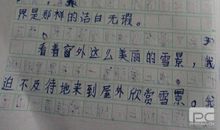 界是那样的洁白无瑕。
看着窗外这么美丽的雪景，我
迫不及待地来到屋外欣赏雪景。我
PC